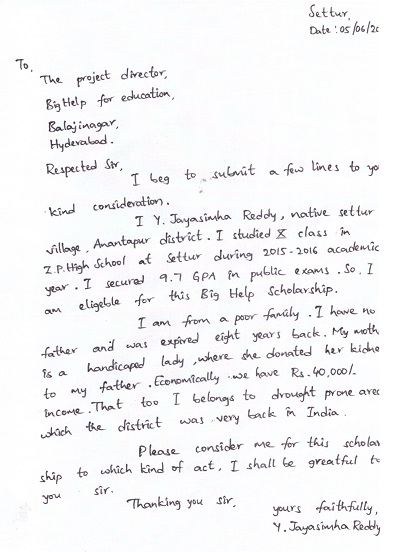 Settur,
Date: 05/06/20
To,
The project director,
Big Help for education,
Balajinagar,
Hyderabad.
Respected Sir,
I beg to submit a few lines to yo
kind consideration.
I Y. Jayasimha Reddy, native settur
village, Anantapur district. I studied X class in
Z.P. High School at Settur during 2015-2016 academic
year. I secured 9.7 GPA in public exams. So, I
am eligeble for this Big Help Scholarship.
I am from a poor family. I have no
father and was expired eight years back. My moth
is a handicaped lady, where she donated her kidne
to my father. Economically we have Rs. 40,000/.
income. That too I belongs to drought prone area
which the district was very back in India.
Please consider me for this scholar
ship to which kind of act, I shall be greatful to
you sir.
Thanking you sir,
yours faithfully,
Y. Jayasimha Reddy